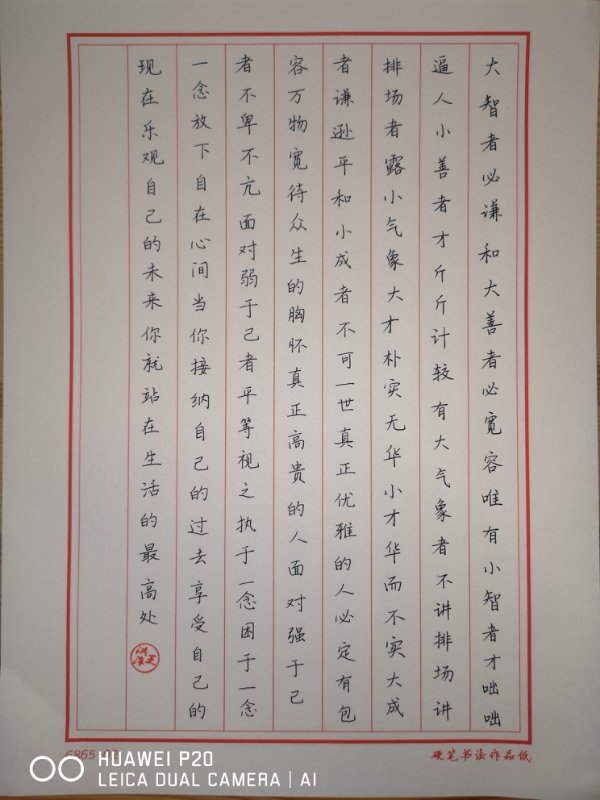 大智者必谦和大善者必宽容唯有小智者才咄咄
逼人小善者才斤斤计较有大气象者不讲排场讲
排场者露小气象大才朴实无华小才华而不实大成
者谦逊平和小成者不可一世真正优雅的人必定有包
容万物宽待众生的胸怀真正高贵的人面对强于己
者不卑不亢面对弱于己者平等视之执于一念困于一念
一念放下自在心间当你接纳自己的过去享受自己的
现在乐观自己的未来你就站在生活的最高处
硬笔书法作品纸
HUAWEI P20
LEICA DUAL CAMERA | AI